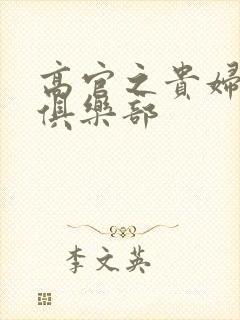 高官之貴婦
俱樂部
李文英